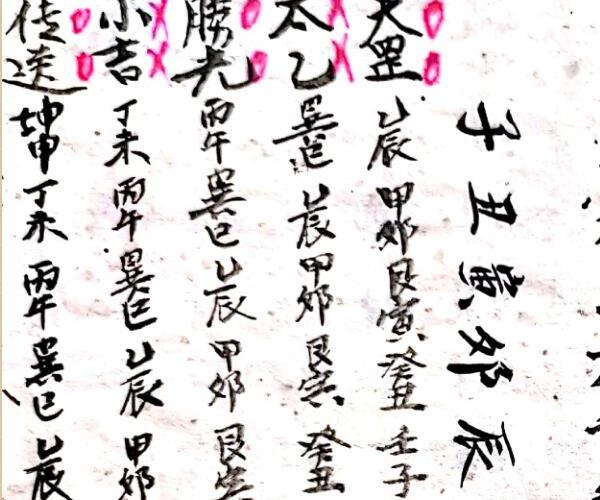 子丑寅郊辰
天罡乙辰甲郊艮寅癸丑壬子
太乙巽巳乙辰甲郊艮寅癸丑
勝光丙午巽巳乙辰甲郊艮寅
小吉丁未丙午巽巳乙辰甲郊
传送坤申丁未丙午巽巳乙辰